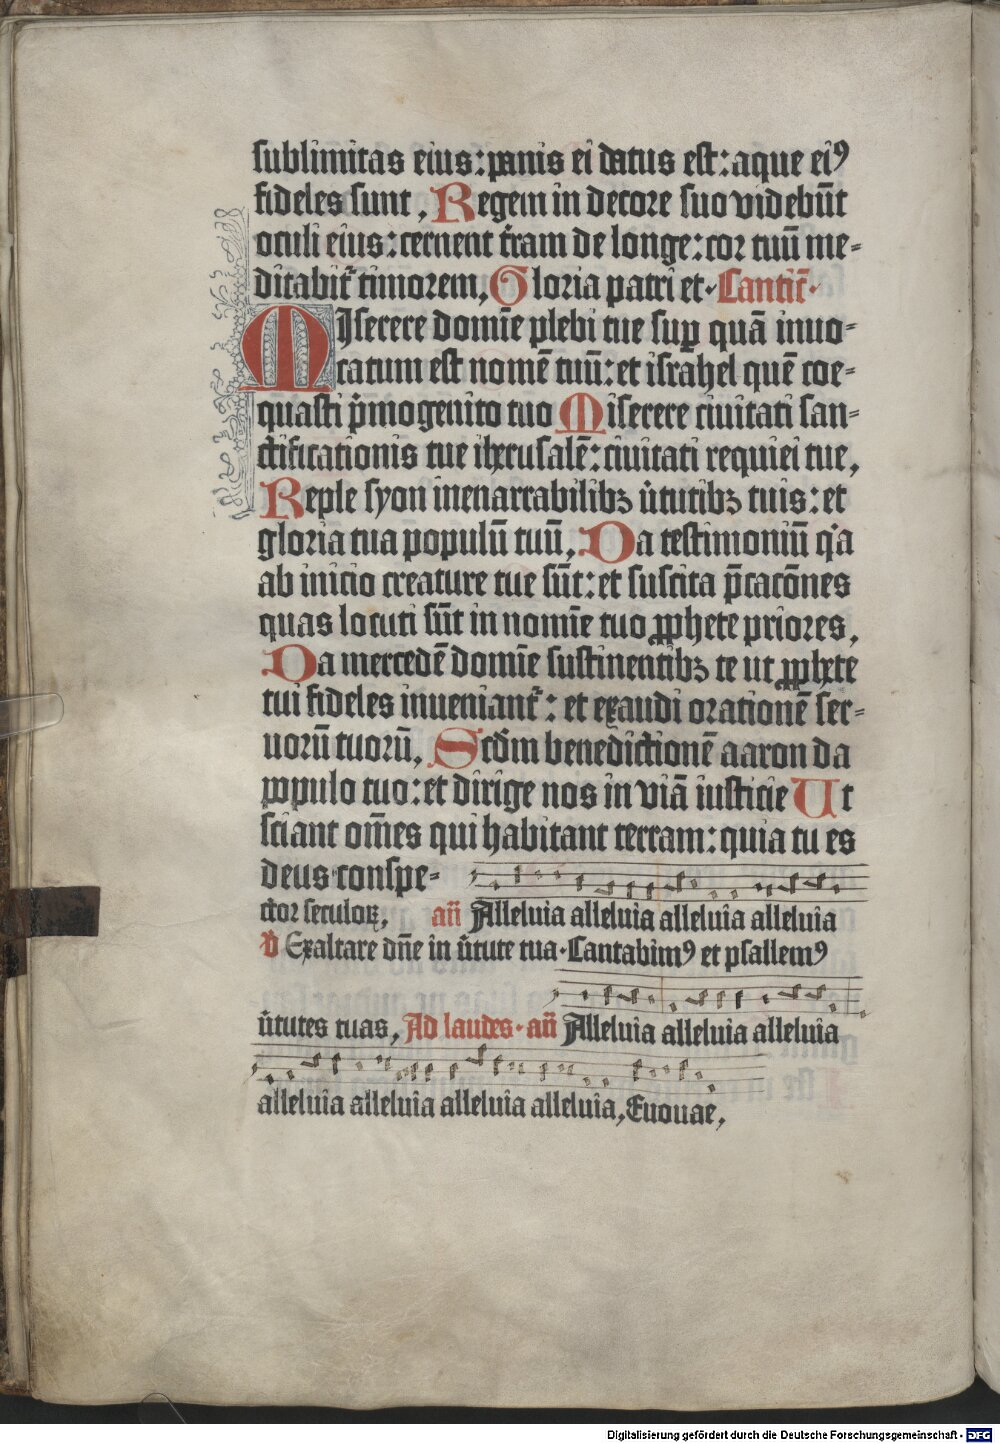 sublimitas eius: panis ei datus est: aque eiꝰ
fideles sunt, Regem in decore suo videbūt
oculi eius: cernent t̄ram de longe: cor tuū me-
ditabit᷑ timorem, Gloria patri et· Cantic̄·
MIserere domīe plebi tue suꝑ quā inuo-
catum est nomē tuū: et israhel quē coe-
quasti p̄mogenito tuo Miserere ciuitati san-
ctificationis tue iherusalē: ciuitati requiei tue,
Reple syon inenarrabilibꝫ v̓tutibꝫ tuis: et
gloriā tua populū tuū, Da testimoniū q'a
ab inicio creature tue sūt: et suscita p̄cacōnes
quas locuti sūt in nomīe tuo ꝓphete priores,
Da mercedē domīe sustinentibꝫ te ut ꝓphete
tui fideles inueniant᷑: et exaudi orationē ser-
uorū tuorū, Scd̄m benedictionē aaron da
populo tuo: et dirige nos in viā iusticie Ut
sciant om̄es qui habitant terram: quia tu es
deus conspe-
ctor seculoꝝ, an̄ Alleluia alleluia alleluia alleluia
℣ Exaltare dn̄e in v̓tute tua· Cantabimꝰ et psallemꝰ
v̓tutes tuas, Ad laudes· an̄ Alleluia alleluia alleluia
alleluia alleluia alleluia alleluia, Euouae,
Digitalisierung gefördert durch die Deutsche Forschungsgemeinschaft - DFG